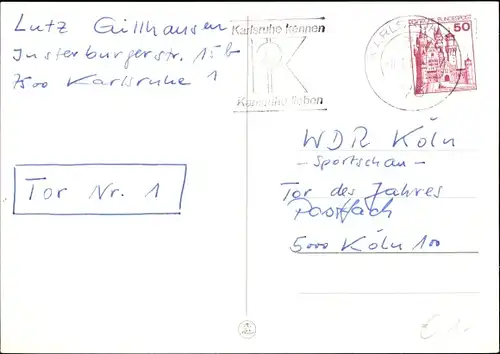 Lutz Gillhausen
Insterburgerstr. 15b
7500 Karlsruhe 1
Karlsruhe kennen
Karlsruhe lieben
DEUTSCHE BUNDESPOST
50
Tor Nr. 1
WDR Köln
- Sportschau -
Tor des Jahres
Postfach
5000 Köln 100